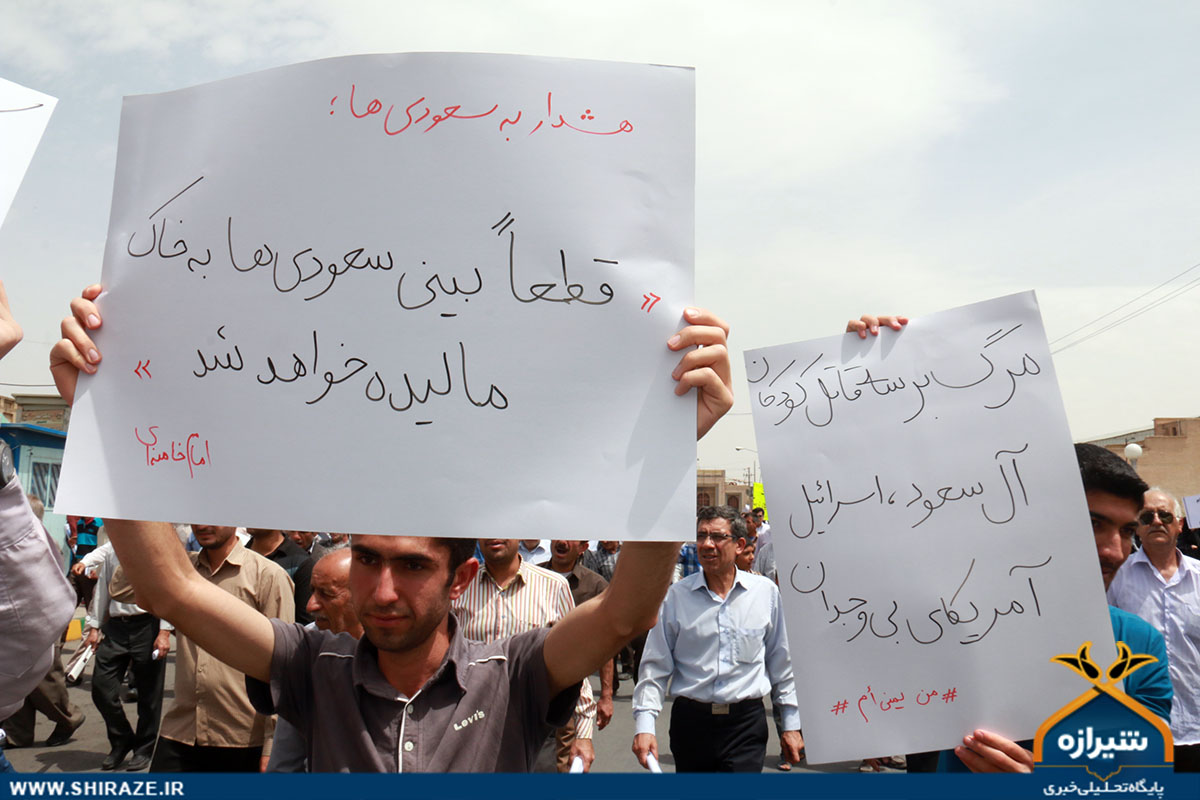 هشدار به سعودی ها؛
« قطعاً بینی سعودی ها به خاک
مالیده خواهد شد »
امام خامنه ای
مرگ بر سه قاتل کودکان
آل سعود، اسرائیل
آمریکای بی وجدان
# من یمنی ام #
Levi's
شیرازه
پایگاه تحلیلی خبری
WWW.SHIRAZE.IR